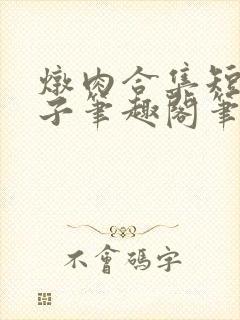 燉肉合集短
子筆趣閣筆
不會碼字